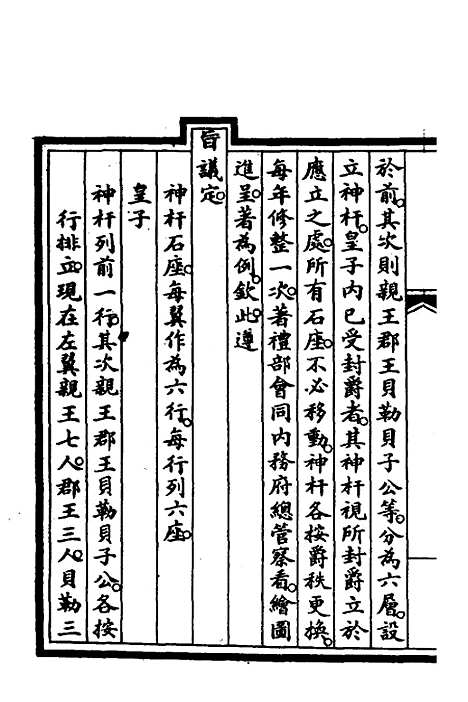 於前。其次則親王郡王貝勒貝子公等。分為六層。設
立神杆。皇子內已受封爵者。其神杆視所封爵立於
應立之處。所有石座。不必移動。神杆各按爵秩更換。
每年修整一次。著禮部會同內務府總管察看。繪圖
進呈。著為例。欽此。遵
旨議定。
神杆石座。每翼作為六行。每行列六座。
皇子
神杆列前一行。其次親王郡王貝勒貝子公。各按
行排立。現在左翼親王七人。郡王三人。貝勒三